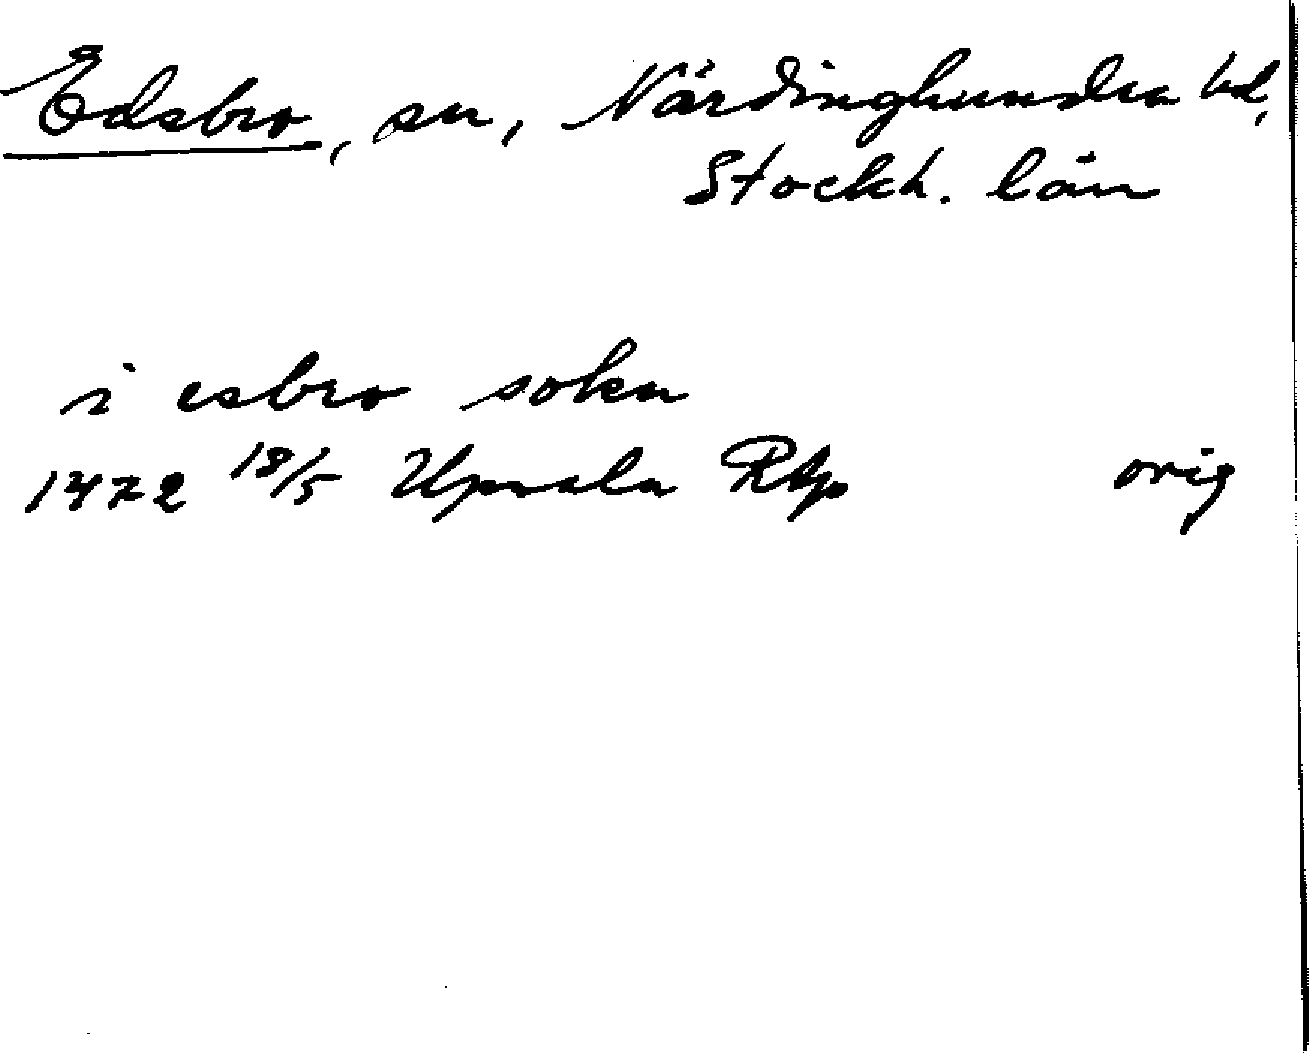 Edsbro, sn, Närdinghundra hd,
Stockh. län
i esbro sokn
1472 18/5 Upsala Rap orig